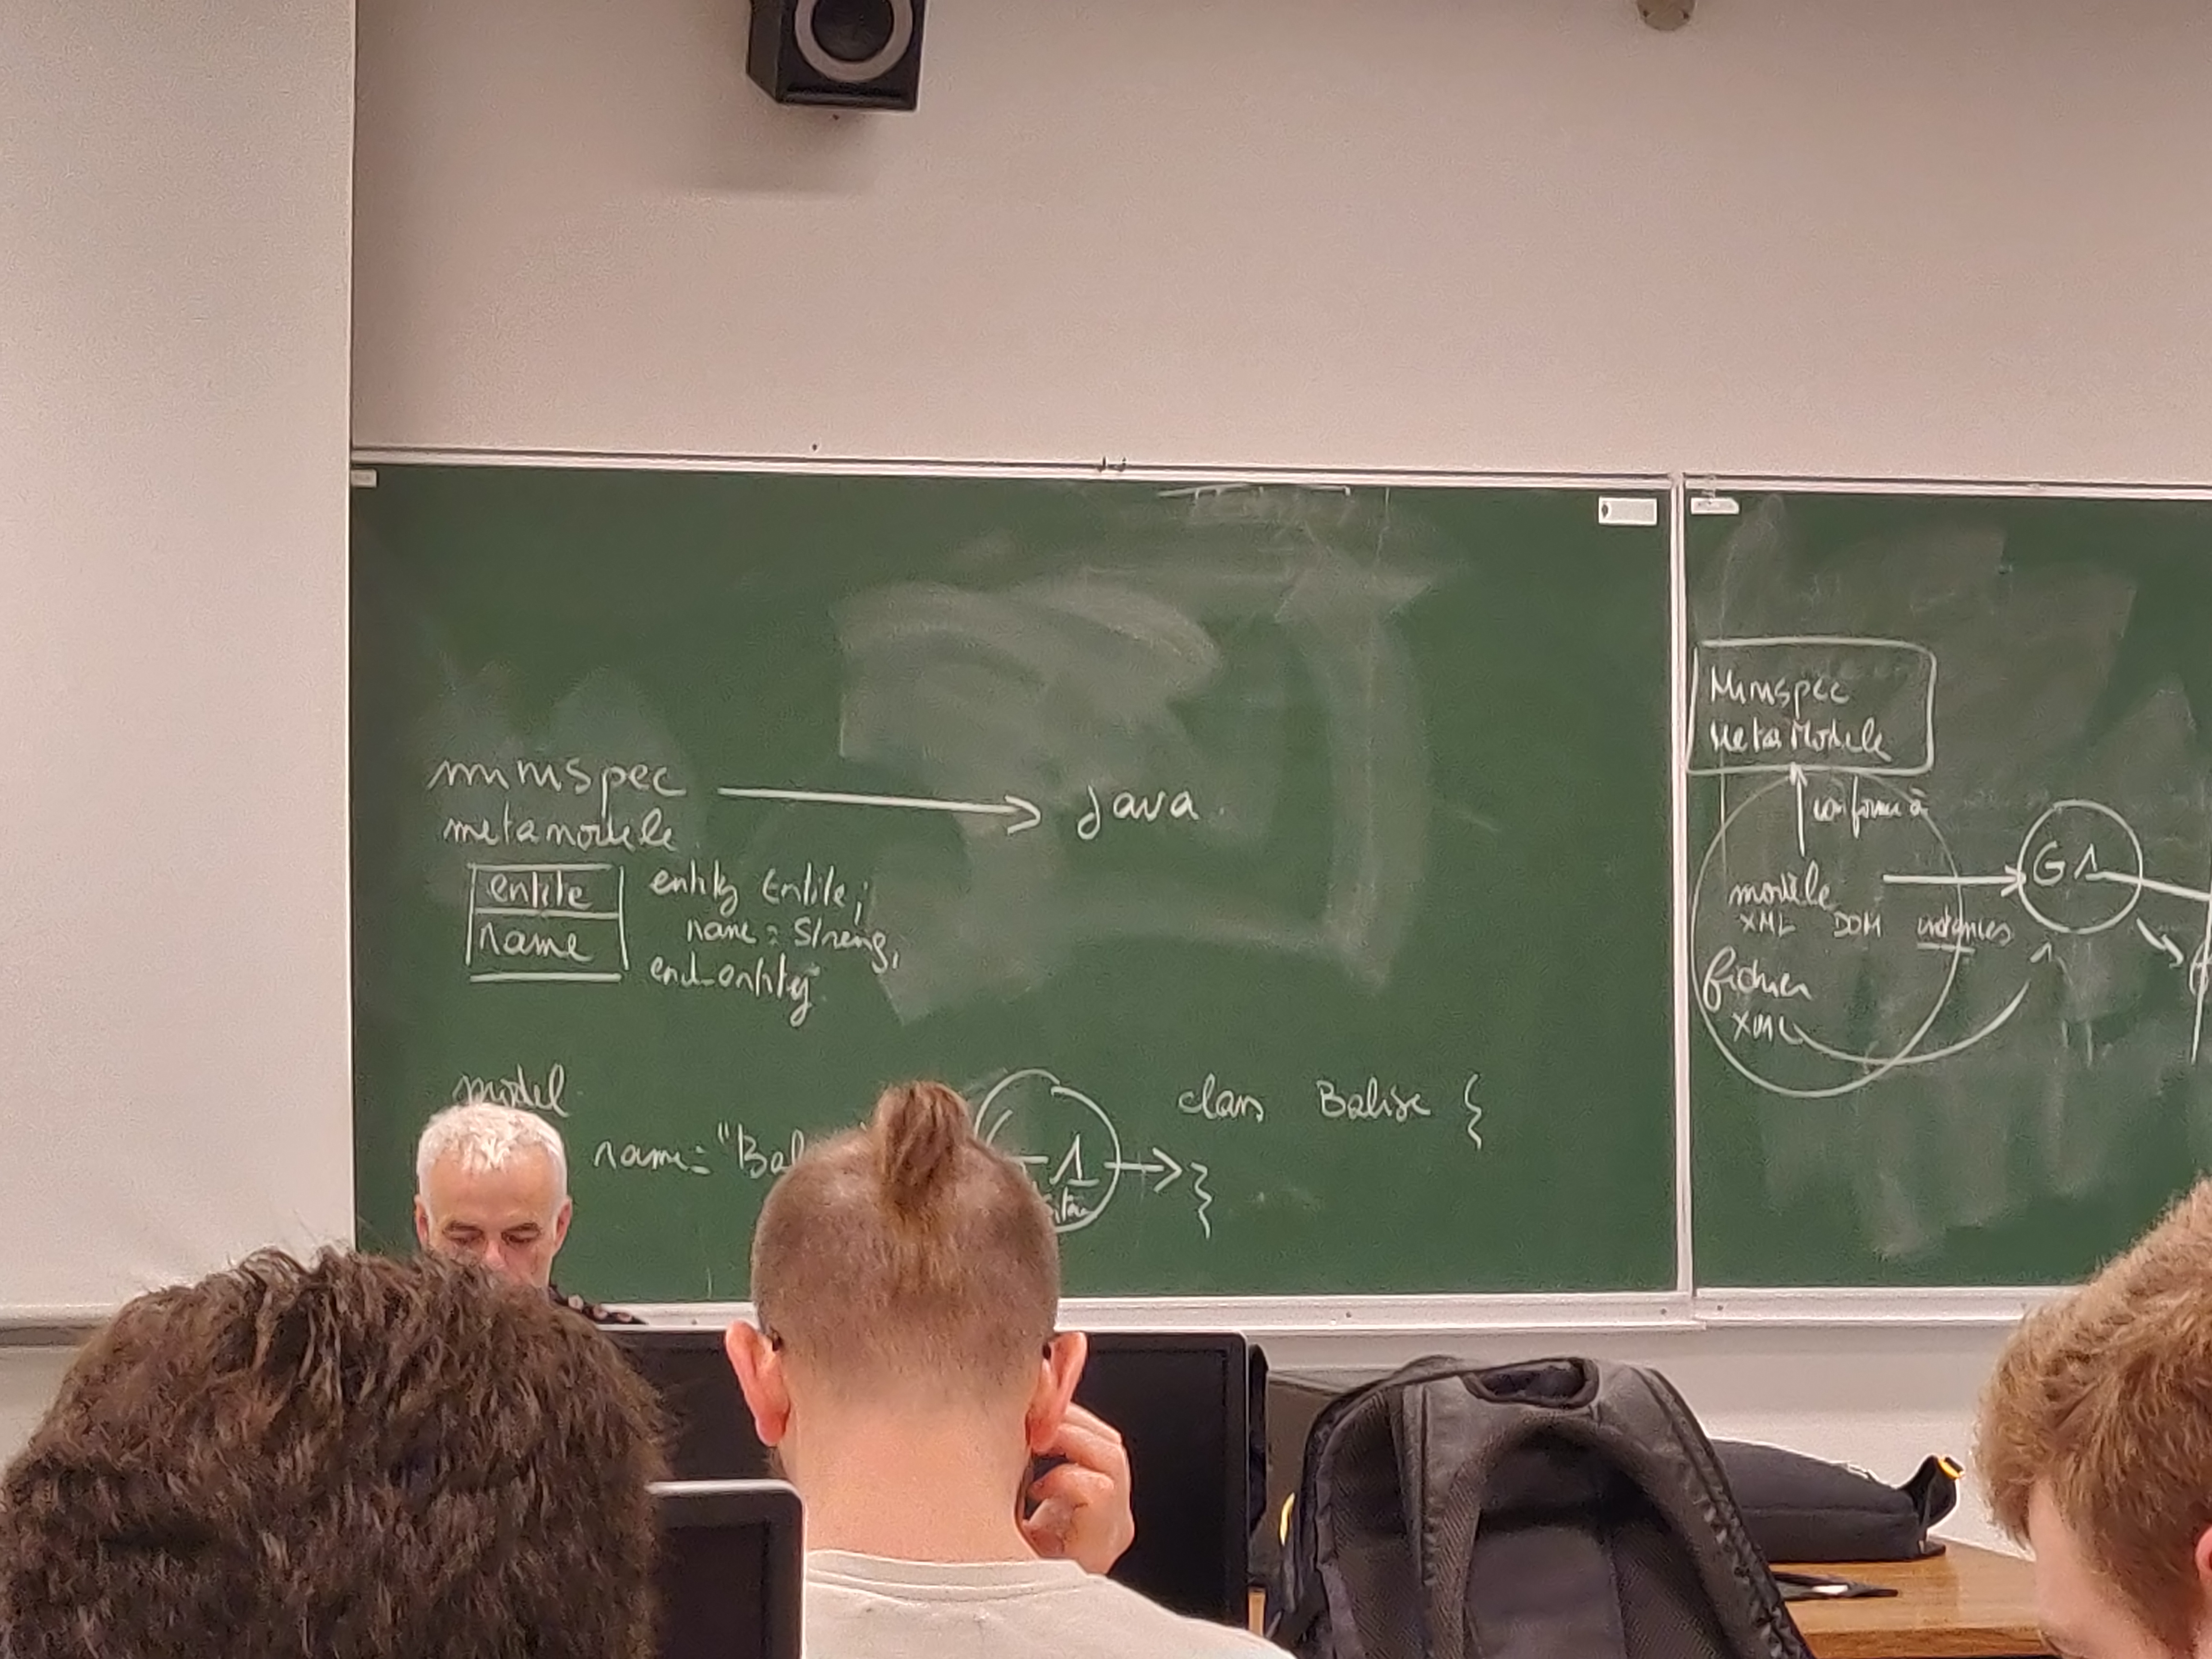 minispec → java
metamodèle
entite
name
entity Entite;
name : String;
end_entity
model
name="Bal
1
class Balise {
}
Minispec
MetaModele
conforme à
modèle
XML DOM
fichier
XML
G1